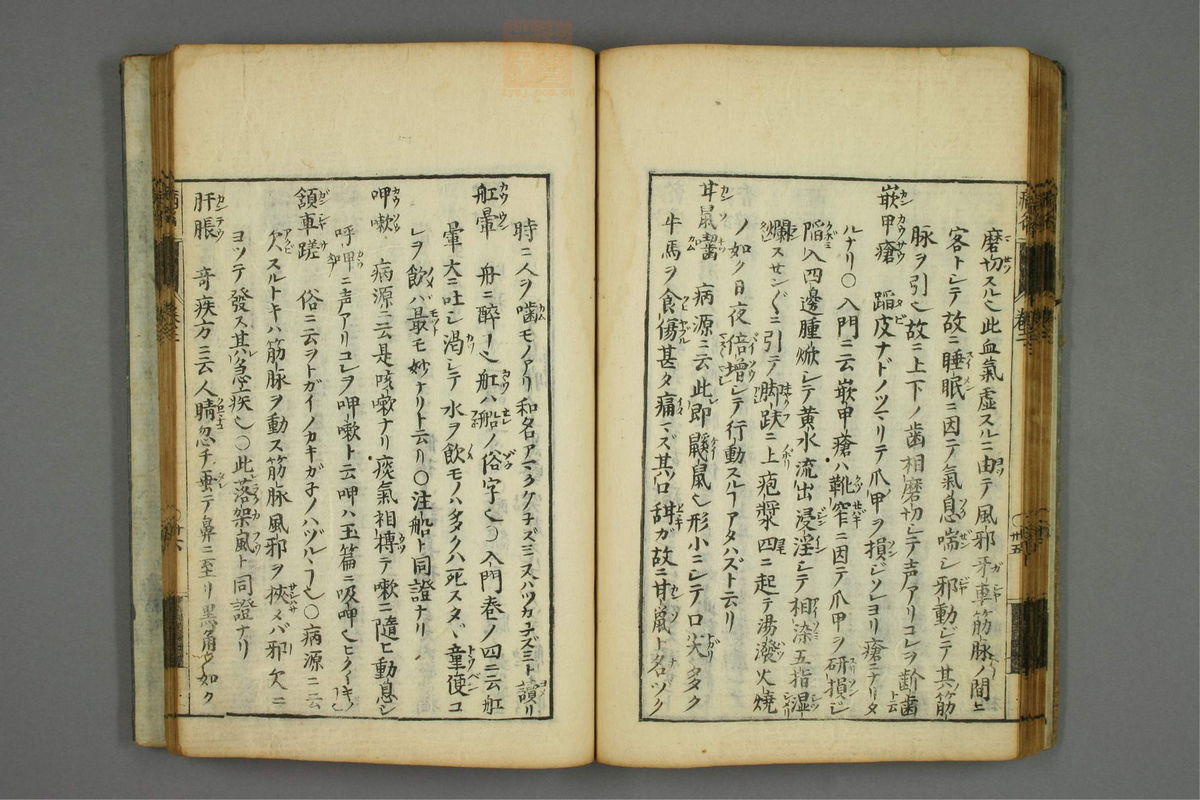 磨切スル也此血氣虚スルニ由テ風邪牙車筋脉ノ間ニ
客トシテ故ニ睡眠ニ因テ氣息喘シ邪動シテ其筋
脉ヲ引也故ニ上下ノ歯相磨切シテ声アリコレヲ齘歯上云
嵌甲瘡 蹈皮ナドノツマリテ爪甲ヲ損ジソレヨリ瘡ニナリタ
ルナリ○入門ニ云嵌甲瘡ハ靴窄ニ因テ爪甲ヲ研損ジ
陷入四邊腫焮シテ黄水流出浸淫シテ相染五指湿
爛スサン〴〵ニ引テノ脚趺ニ上疱漿四ニ起テ湯潑火焼
ノ如ク日夜倍增シテ行動スルヿアタハズト云リ
甘鼠囓 病源ニ云此即鼷鼠也形小ニシテ口尖タク
牛馬ヲ食傷甚タ痛マズ其口甜ガ故ニ甘鼠ト名ヅク
時ニ人ヲ噛モノアリ和名アマクチネズミ又ハツカネズミト讀リ
舡暈 舟ニ醉ヿ也舡ハ船ノ俗字也○入門巻ノ四ニ云舡
暈大ニ吐シ渇シテ水ヲ飲モノハタタク八死スタヾ童便コ
レヲ飲バ最モ妙ナリト云リ○注船ト同證ナリ
呷嗽 病源ニ云是咳嗽ナリ痰氣相摶テ嗽ニ隨ヒ動息シ
呼呷ニ声アリコレヲ呷嗽ト云呷ハ玉篇ニ吸呷也ヒクイキ也
頷車蹉 俗ニ云ヲトガイノカキガネノハヅルヽヿ也○病源ニ云
欠スルトキハ筋脉ヲ動ス筋脉風邪ヲ挾メバ邪欠ニ
ヨツテ發ス其急疾也○此落架風ト同證ナリ
肝脹 奇疾方ニ云人睛忽チ垂テ鼻ニ至リ黒角ノ如ク